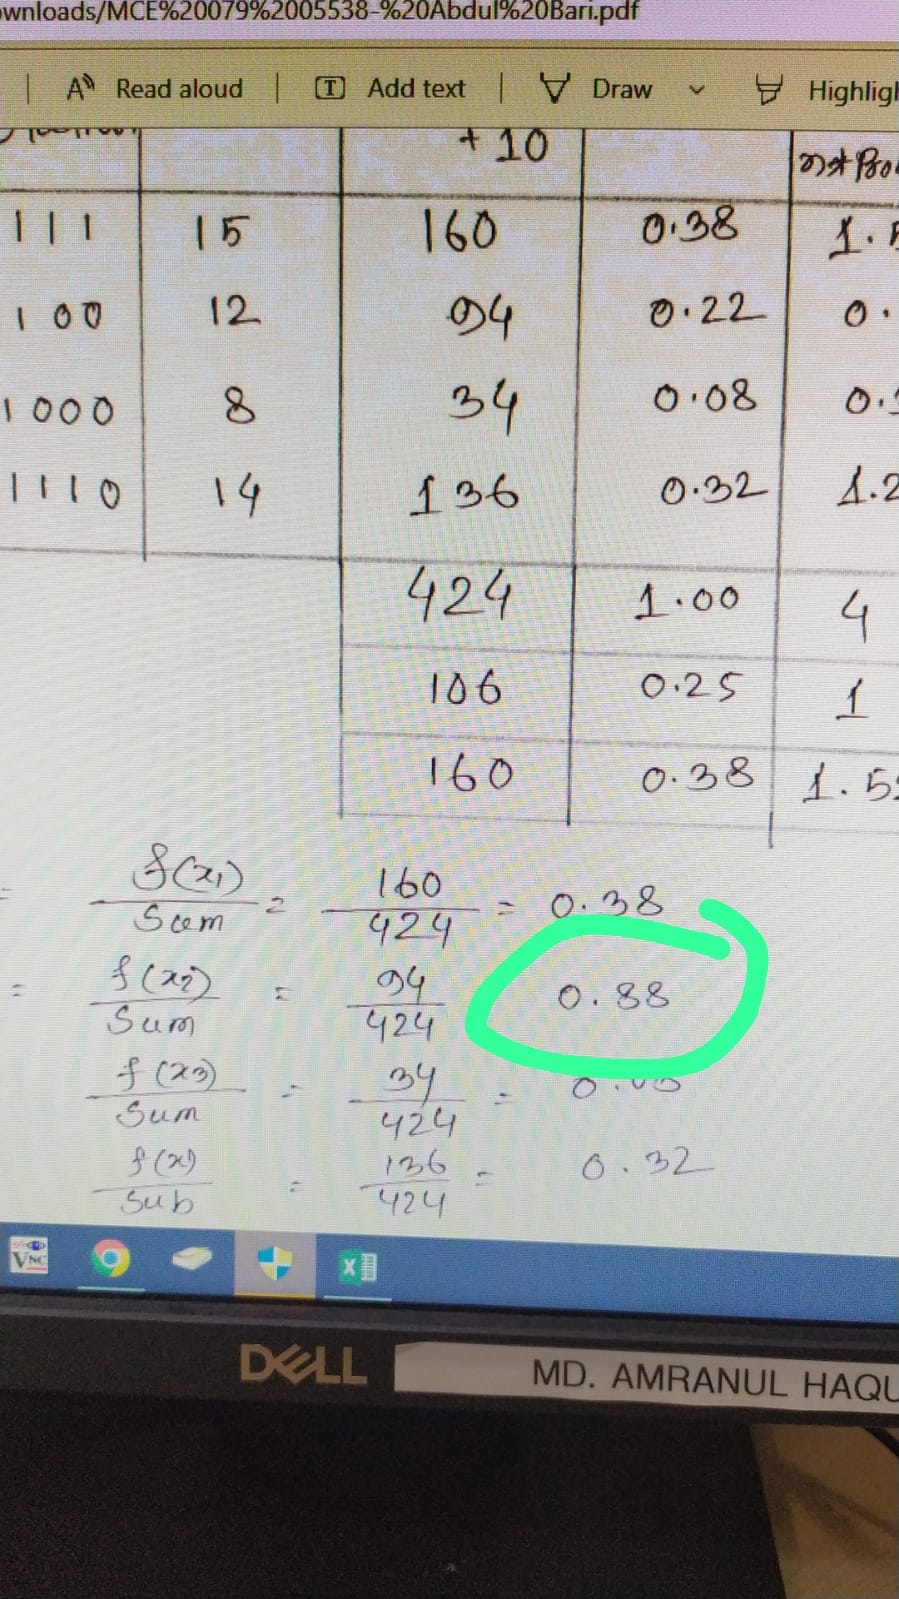 wnloads/MCE%20079%2005538-%20Abdul%20Bari.pdf
Read aloud | T Add text | Draw Highligh
+ 10
111 15 160 0.38 1.
100 12 94 0.22 0.
1000 8 34 0.08 0.
1110 14 136 0.32 1.2
424 1.00 4
106 0.25 1
160 0.38 1.5
f(x1) / Sum = 160 / 424 = 0.38
= f(x2) / Sum = 94 / 424 0.88
f(x3) / Sum = 34 / 424 =
f(x) / Sub = 136 / 424 = 0.32
VNC
DELL
MD. AMRANUL HAQU